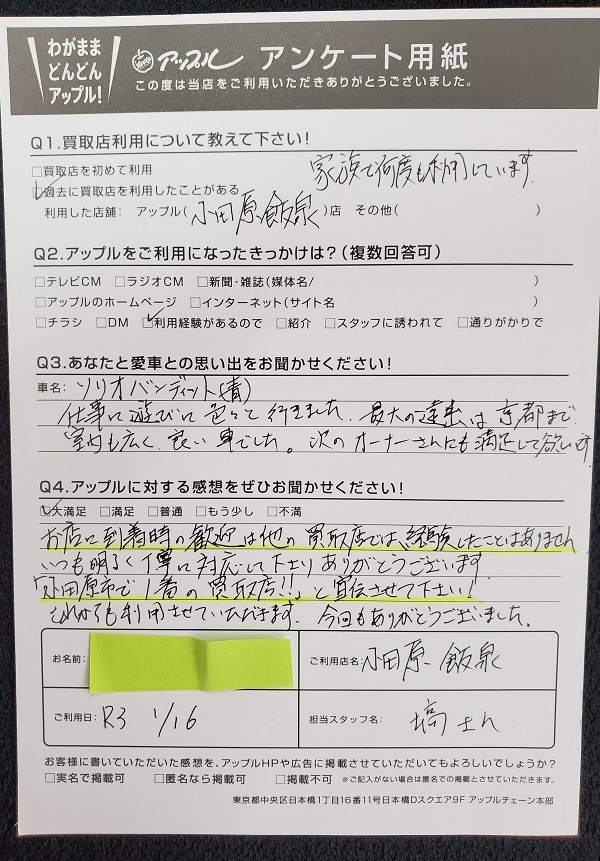 わがまま
どんどん
アップル!
アップル アンケート用紙
この度は当店をご利用いただきありがとうございました。
Q1.買取店利用について教えて下さい!
□買取店を初めて利用
家族で何度も利用しています
□過去に買取店を利用したことがある
利用した店舗: アップル(小田原飯泉)店 その他( )
Q2.アップルをご利用になったきっかけは?(複数回答可)
□テレビCM □ラジオCM □新聞・雑誌(媒体名/ )
□アップルのホームページ □インターネット(サイト名 )
□チラシ □DM □利用経験があるので □紹介 □スタッフに誘われて □通りがかりで
Q3.あなたと愛車との思い出をお聞かせください!
車名: ソリオバンディット(青)
仕事に遊びに色々て行きました。最大の遠出は京都まで
室内も広く、良い車でした。次のオーナーさんにも満足して欲しいです
Q4.アップルに対する感想をぜひお聞かせください!
□大満足 □満足 □普通 □もう少し □不満
お店に到着時の歓迎は他の買取店では、経験したことはありません
いつも明るく丁寧に対応して下さりありがとうございます
「小田原市で1番の買取店!!」と宣伝させて下さい!
これからも利用させていただきます。今回もありがとうございました。
お名前:
ご利用店名: 小田原飯泉
ご利用日: R3 1/16
担当スタッフ名: 塙さん
お客様に書いていただいた感想を、アップルHPや広告に掲載させていただいてもよろしいでしょうか?
□実名で掲載可 □匿名なら掲載可 □掲載不可 ※ご記入がない場合は匿名での掲載とさせていただきます。
東京都中央区日本橋1丁目16番11号日本橋Dスクエア9F アップルチェーン本部